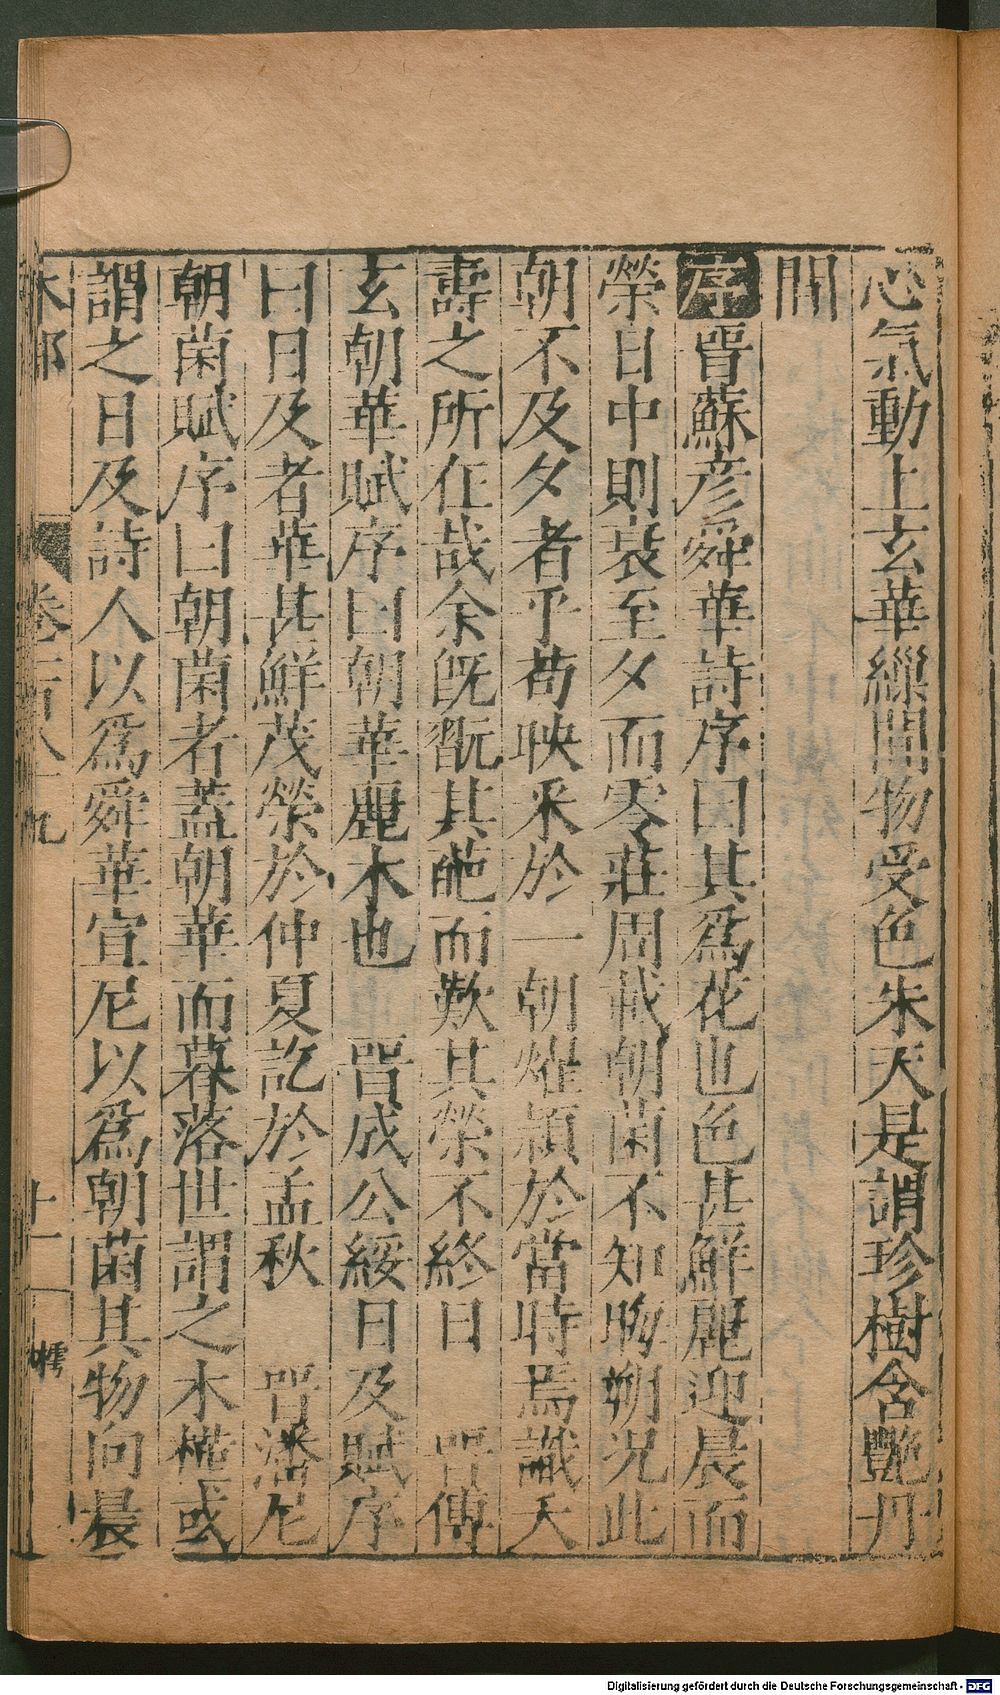 心氣動上玄華繅閒物受色朱天是謂珍樹含艷丹
間
序晉蘇彥舜華詩序曰其爲花也色甚鮮麗迎晨而
榮日中則衰至夕而零莊周載朝菌不知晦朔况此
朝不及夕者乎苟映采於一朝燿穎於當時焉識夭
壽之所在哉余旣翫其葩而歎其榮不終日 晉傅
玄朝華賦序曰朝華麗木也 晉成公綏日及賦序
曰日及者華甚鮮茂榮於仲夏訖於孟秋 晉潘尼
朝菌賦序曰朝菌者蓋朝華而暮落世謂之木槿或
謂之日及詩人以爲舜華宣尼以爲朝菌其物向晨
木部 卷二百八十九 十一
Digitalisierung gefördert durch die Deutsche Forschungsgemeinschaft - DFG